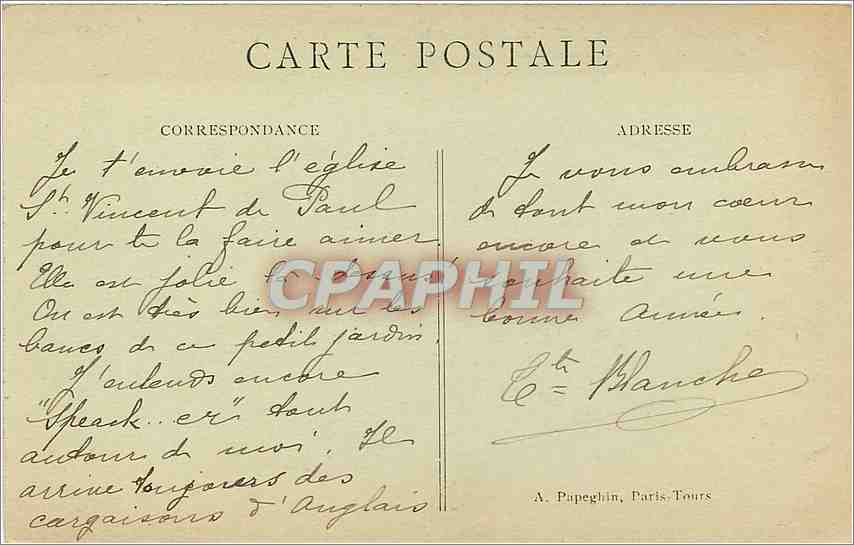 CARTE POSTALE
CORRESPONDANCE
Je t'envoie l'église
St. Vincent de Paul
pour te la faire aimer.
Elle est jolie
On est très bien sur les
bancs de ce petit jardin.
J'entends encore
"Speack.. er" tout
autour de moi. Il
arrive toujours des
cargaisons d'Anglais
ADRESSE
Je vous embrasse
de tout mon cœur
encore et vous
souhaite une
bonne Année.
Tte Blanche
A. Papeghin, Paris-Tours
CPAPHIL